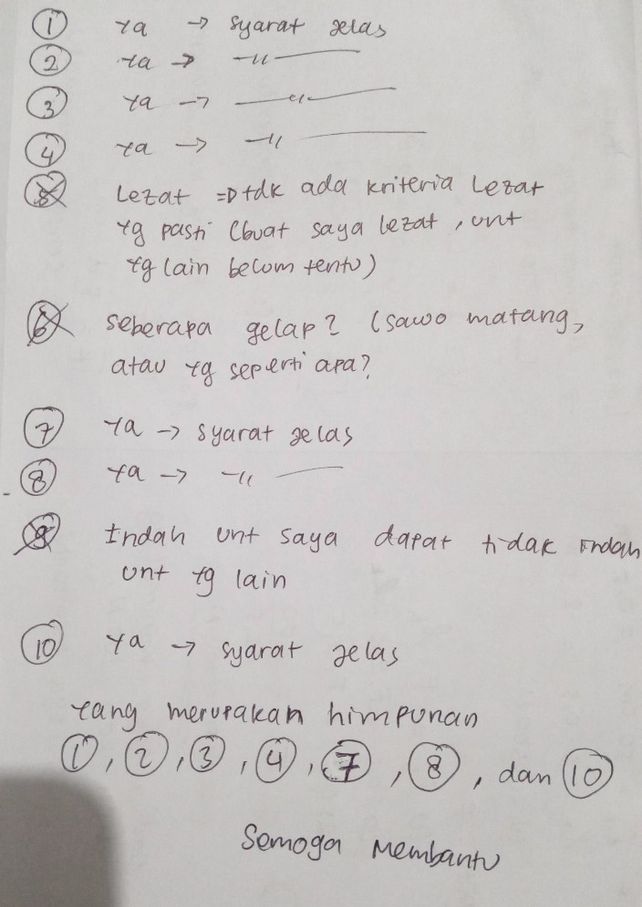 ① ya → syarat jelas
② ya → -〃-
③ ya → -〃-
④ ya → -〃-
⑤ Lezat => tdk ada kriteria Lezat
yg pasti (buat saya lezat, unt
yg lain belum tentu)
⑥ seberapa gelap? (sawo matang,
atau yg seperti apa?
⑦ ya → syarat jelas
⑧ ya → -〃-
⑨ Indah unt saya dapat tidak indah
unt yg lain
⑩ ya → syarat jelas
yang merupakan himpunan
①, ②, ③, ④, ⑦, ⑧, dan ⑩
Semoga Membantu